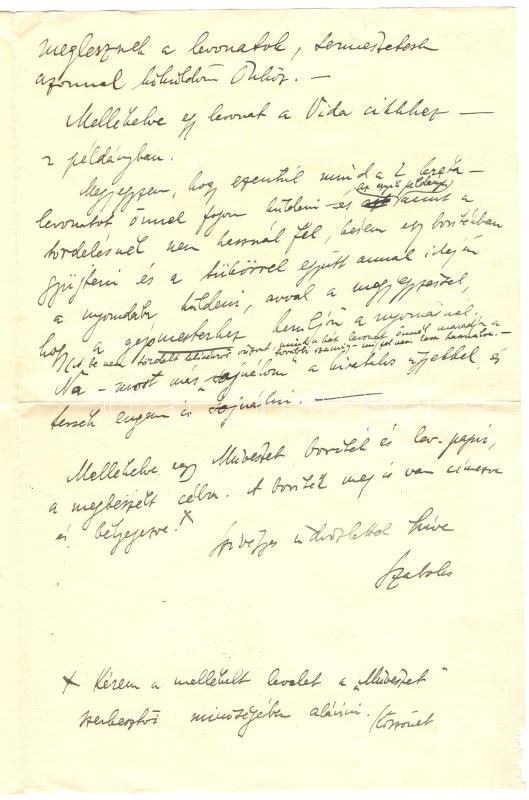 meglesznek a levonatok, természetesen
azonnal kiküldöm Önhöz. —
Mellékelve egy levonat a Vida cikkhez —
2 példányban.
Megjegyzem, hogy ezentúl mind a 2 kefe-
levonatot önnél fogom küldeni és (az egyik példányt) amit a
tördelésnél nem használ fel, kérem egy borítékban
gyűjteni és a tükörrel együtt annak idején
a nyomdába küldeni, avval a megjegyzéssel,
hogy a gépmesterhez kerüljön a nyomásnál.
(A be nem tördelt kihúzás viszont, mind a két levonat önnél maradjon a
további számig – míg fel nem lesz használva. –
Na – most már "sajnálom" a hivatalos üggyel, és
tessék engem is sajnálni. —
Mellékelve egy Művészet boríték és lev. papír,
a megbeszélt célra. A boríték meg is van címezve
és bélyegezve. x
Szívélyes üdvözlettel híve
Szabolcs
x Kérem a mellékelt levelet a „Művészet"
szerkesztői minőségében aláírni. Köszönet